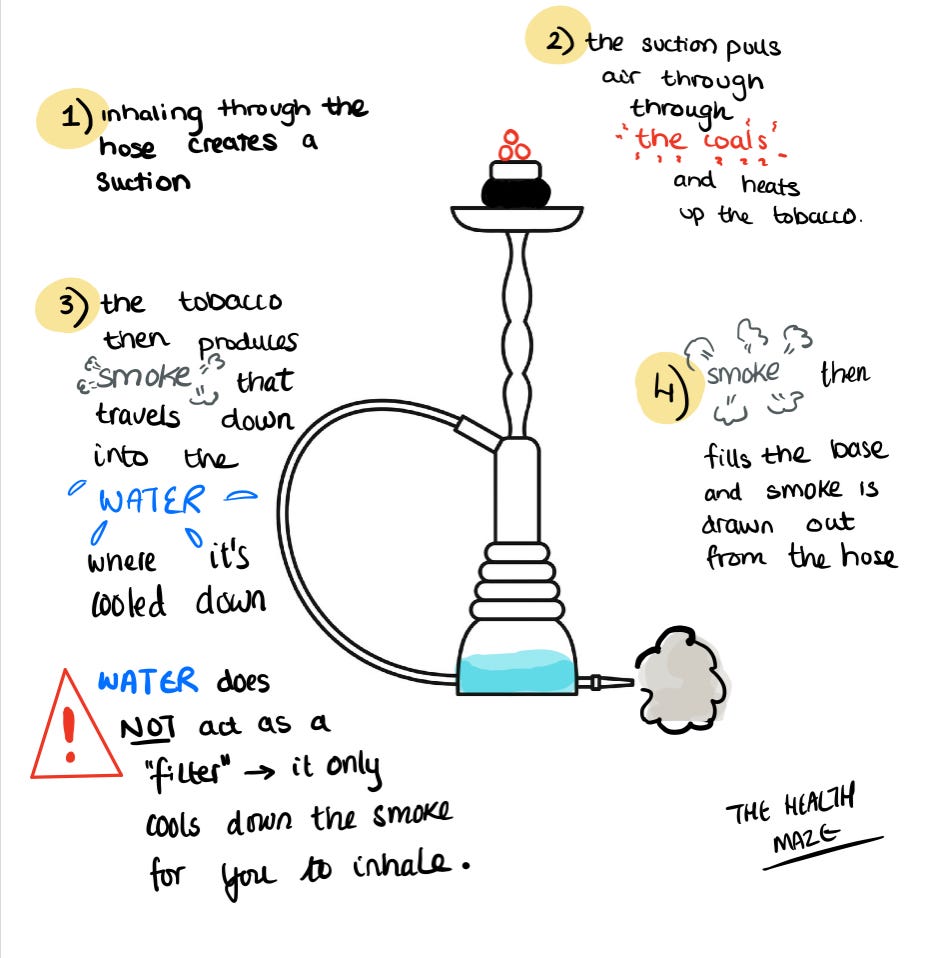 1) inhaling through the
hose creates a
suction
2) the suction pulls
air through
through
the coals
and heats
up the tobacco.
3) the tobacco
then produces
smoke that
travels down
into the
WATER
where it's
cooled down
4) smoke then
fills the base
and smoke is
drawn out
from the hose
!
WATER does
NOT act as a
"filter" → it only
cools down the smoke
for you to inhale.
THE HEALTH
MAZE